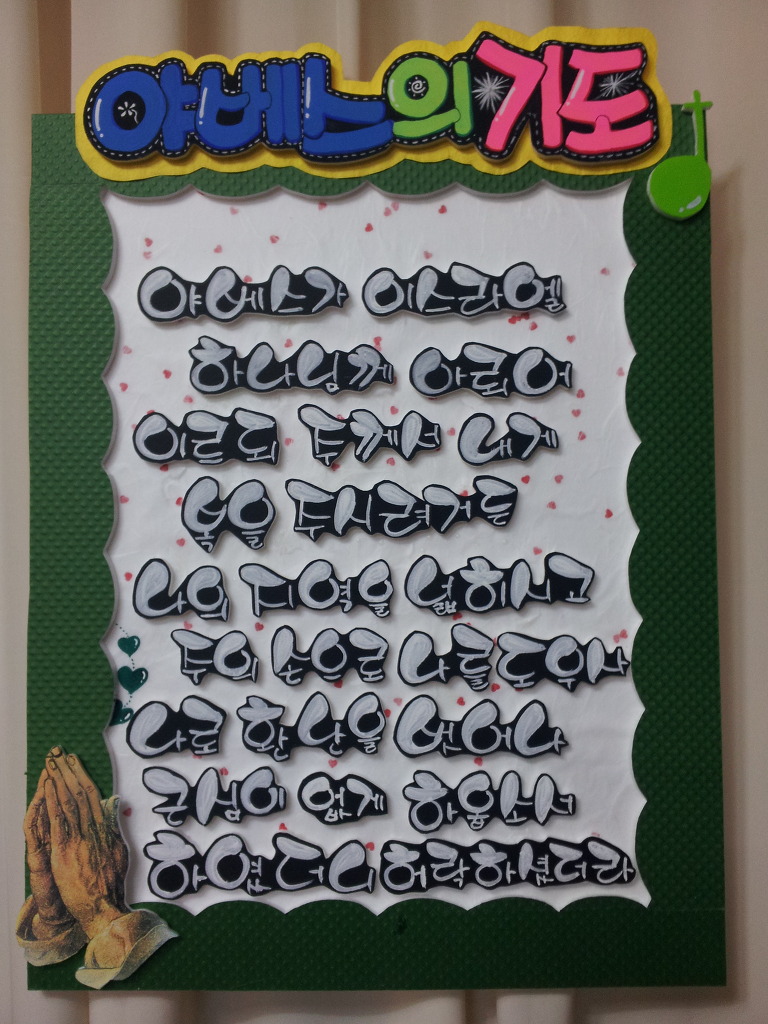 야베스의기도
야베스가 이스라엘
하나님께 아뢰어
이르되 주께서 내게
복을 주시려거든
나의 지역을 넓히시고
주의 손으로 나를도우사
나로 환난을 벗어나
근심이 없게 하옵소서
하였더니허락하셨더라